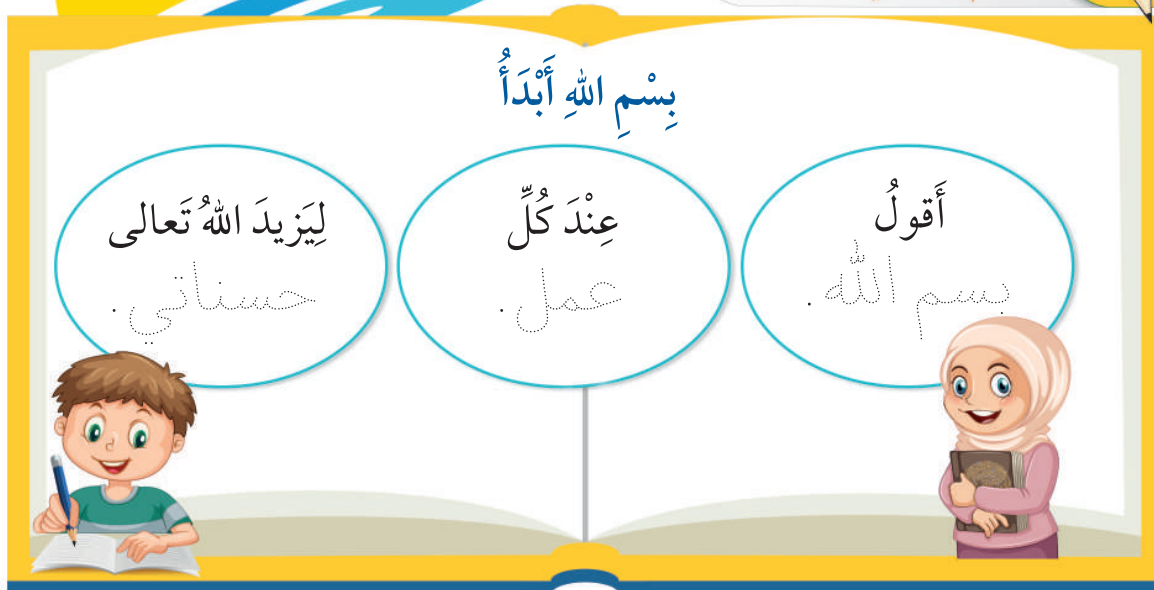 بِسْمِ اللهِ أَبْدَأُ
أَقولُ
بسم الله .
عِنْدَ كُلِّ
عمل .
لِيَزيدَ اللهُ تَعالى
حسناتي .